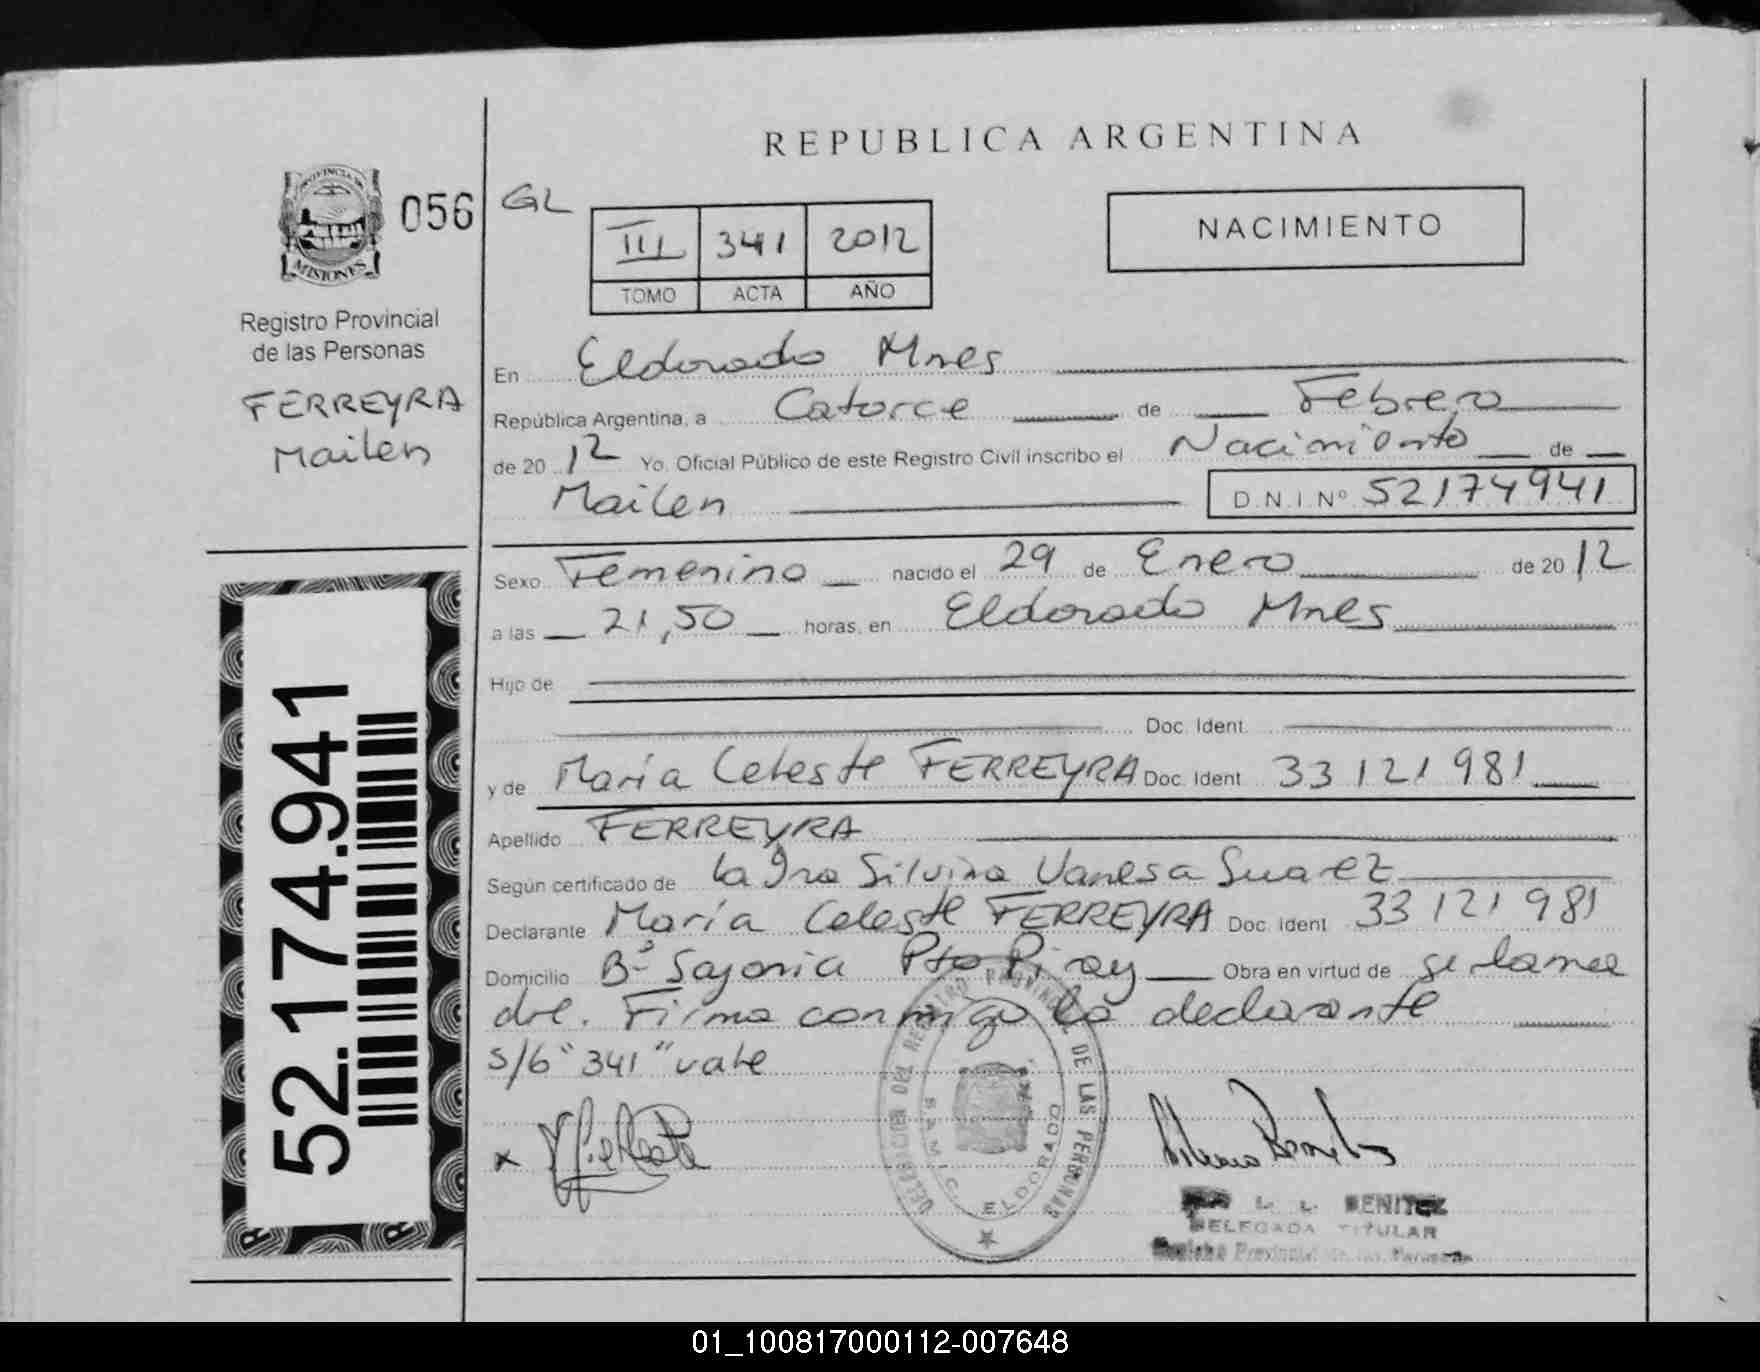 REPUBLICA ARGENTINA
PROVINCIA DE
MISIONES
056
GL
III 341 2012
TOMO ACTA AÑO
NACIMIENTO
Registro Provincial
de las Personas
FERREYRA
Mailen
52.174.941
En Eldorado Mnes
República Argentina, a Catorce de Febrero
de 20 12 Yo, Oficial Público de este Registro Civil inscribo el Nacimiento de
Mailen D.N.I. Nº 52174941
Sexo Femenino nacido el 29 de Enero de 20 12
a las 21,50 horas, en Eldorado Mnes
Hijo de
Doc. Ident.
y de Maria Celeste FERREYRA Doc. Ident. 33 121 981
Apellido FERREYRA
Según certificado de la Dra Silvina Vanesa Suarez
Declarante María Celeste FERREYRA Doc. Ident. 33 121 981
Domicilio Bº Sajonia Pto Piray Obra en virtud de ser la ma
dre. Firma conmigo la declarante
s/b "341" vale
DELEGACION DEL REGISTRO PROVINCIAL DE LAS PERSONAS
S.A.M.I.C. ELDORADO
x
L. L. BENITEZ
DELEGADA TITULAR
Registro Provincial de las Personas
01_100817000112-007648